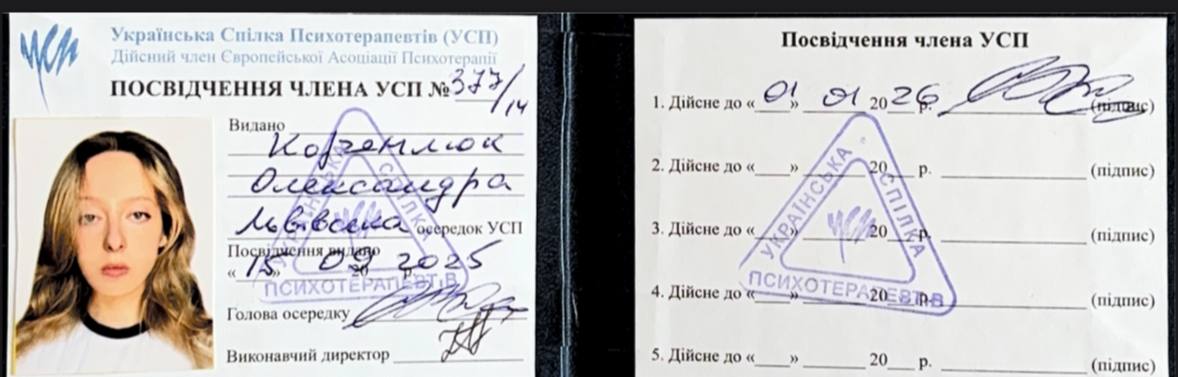 УСП
Українська Спілка Психотерапевтів (УСП)
Дійсний член Європейської Асоціації Психотерапії
ПОСВІДЧЕННЯ ЧЛЕНА УСП № 377/14
Видано
Корченлюк
Олександра
Львівська осередок УСП
Посвідчення видано
« 15 » 09 2025 р.
Голова осередку
Виконавчий директор
УКРАЇНСЬКА СПІЛКА ПСИХОТЕРАПЕВТІВ
Посвідчення члена УСП
1. Дійсне до « 01 » 01 20 26 р. (підпис)
2. Дійсне до «___» ______ 20___ р. (підпис)
3. Дійсне до «___» ______ 20___ р. (підпис)
4. Дійсне до «___» ______ 20___ р. (підпис)
5. Дійсне до «___» ______ 20___ р. (підпис)
УКРАЇНСЬКА СПІЛКА ПСИХОТЕРАПЕВТІВ